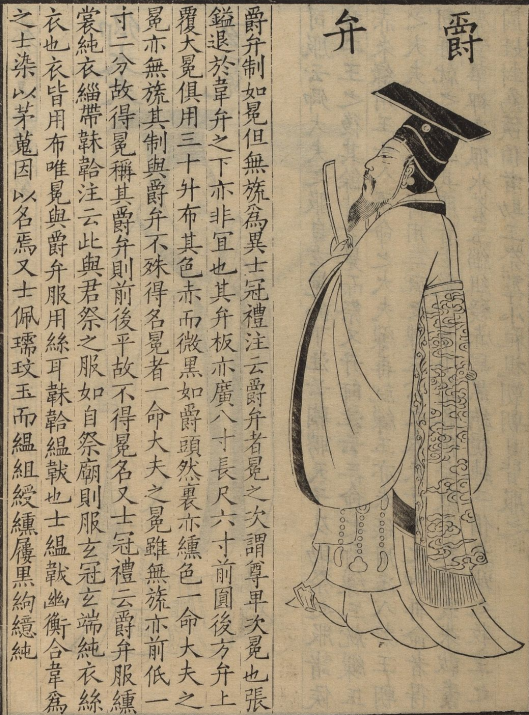 爵弁
爵弁制如冕但無旒爲異士冠禮注云爵弁者冕之次謂尊卑次冕也張
鎰退於韋弁之下亦非宜也其弁板亦廣八寸長尺六寸前圓後方弁上
覆大冕俱用三十升布其色赤而微黑如爵頭然裏亦纁色一命大夫之
冕亦無旒其制與爵弁不殊得名冕者一命大夫之冕雖無旒亦前低一
寸二分故得冕稱其爵弁則前後平故不得冕名又士冠禮云爵弁服纁
裳純衣緇帶韎韐注云此與君祭之服如自祭廟則服玄冠玄端純衣絲
衣也衣皆用布唯冕與爵弁服用絲耳韎韐緼韍也士緼韍幽衡合韋爲
之士染以茅蒐因以名焉又士佩瓀玟玉而緼組綬纁屨黒絇繶純